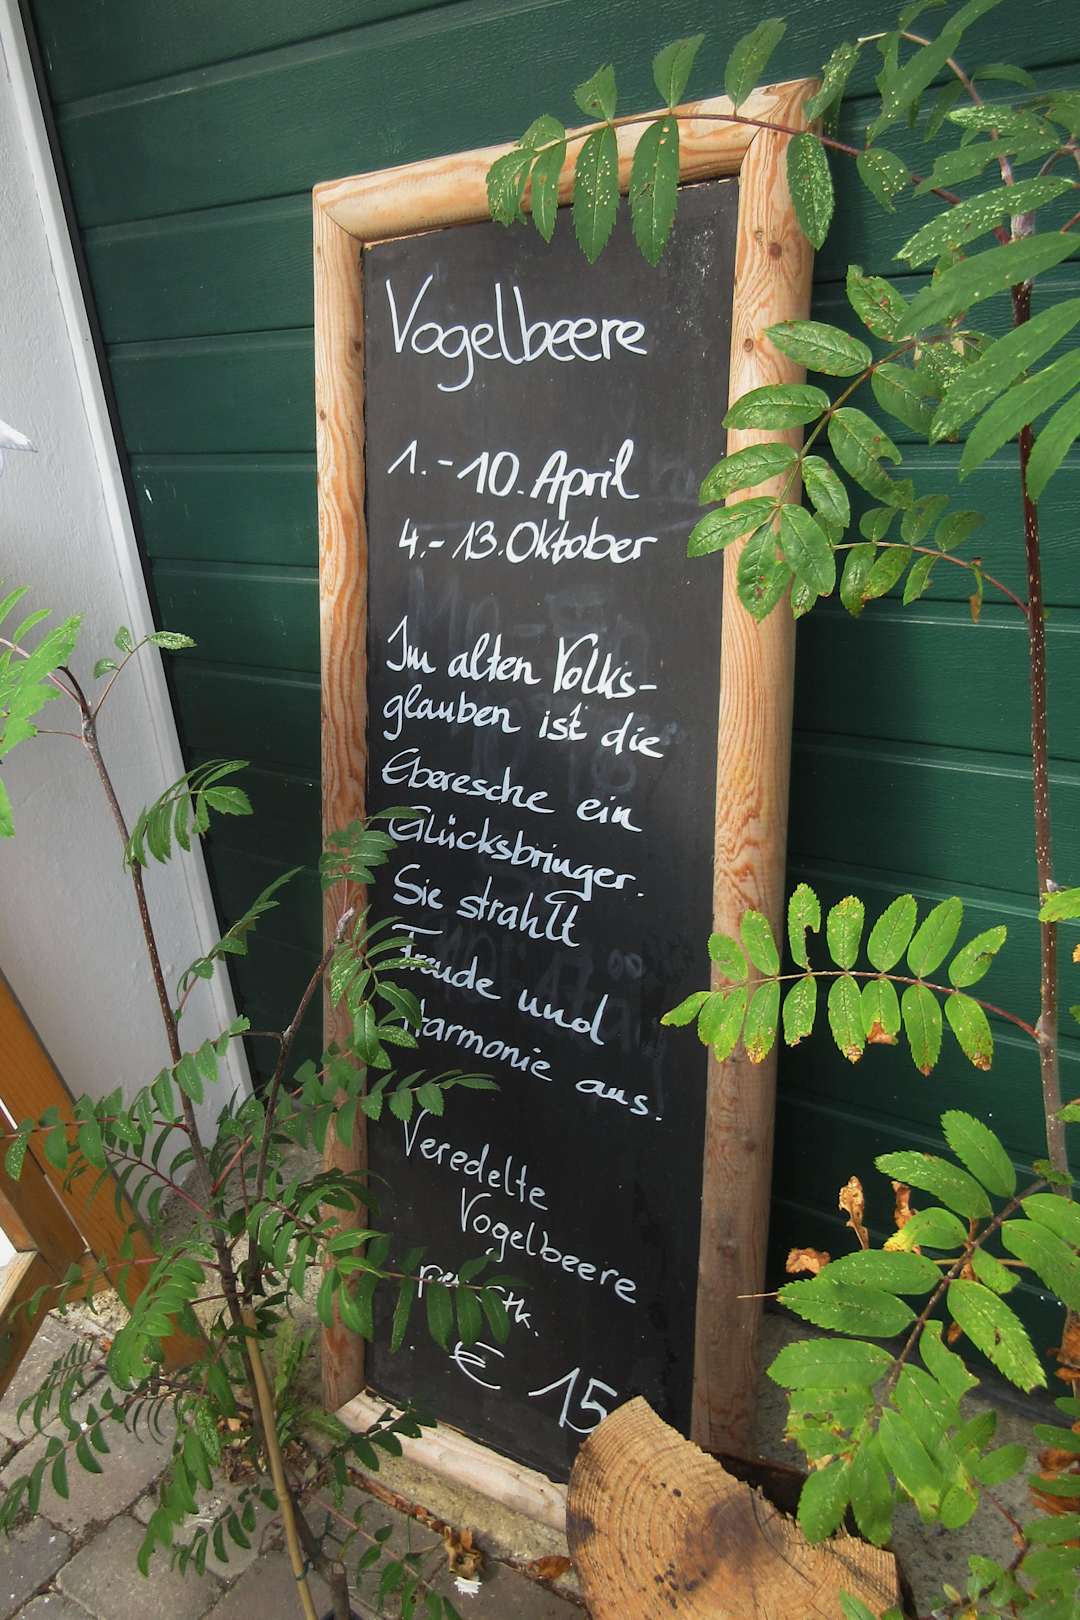 Vogelbeere
1.-10. April
4.-13. Oktober
Im alten Volks-
glauben ist die
Eberesche ein
Glücksbringer.
Sie strahlt
Freude und
Harmonie aus.
Veredelte
Vogelbeere
per Stk.
€ 15